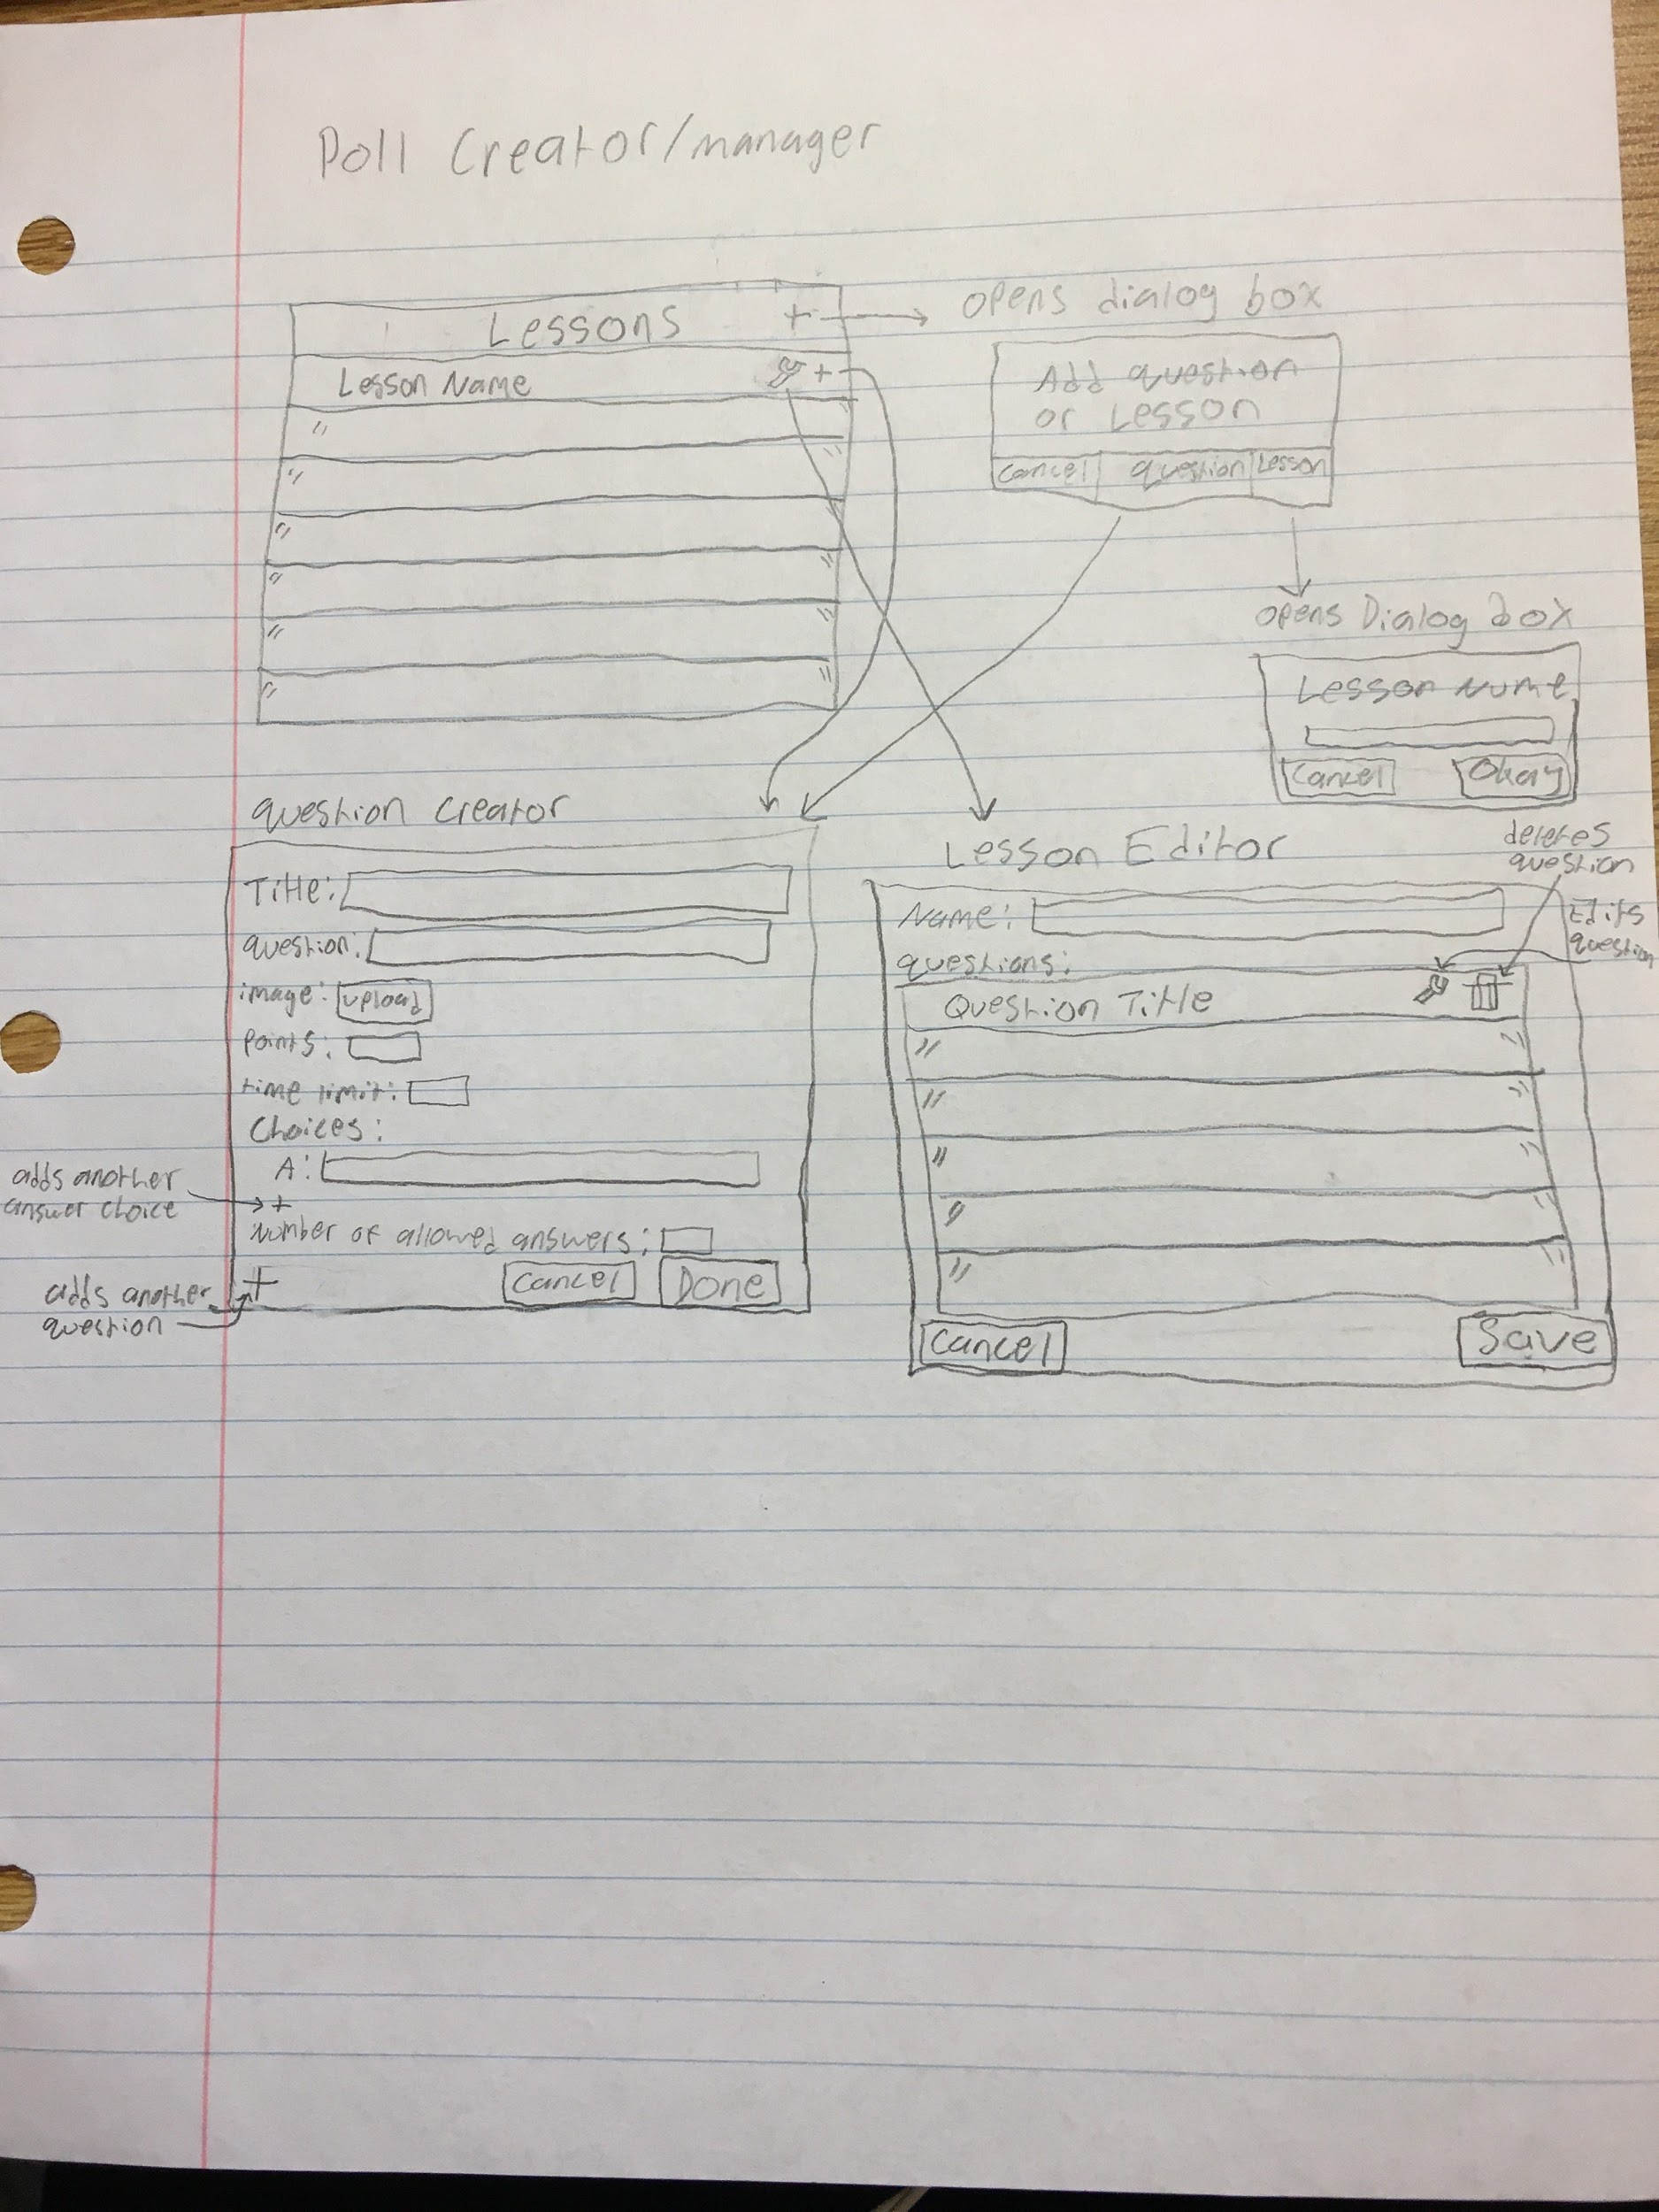 Poll Creator/manager
Lessons +
Lesson Name +
"
"
"
"
"
"
opens dialog box
Add question
or Lesson
Cancel question Lesson
opens Dialog box
Lesson Name
Cancel Okay
question creator
Title:
question:
image: upload
points:
time limit:
Choices:
A:
+
Number of allowed answers:
+ Cancel Done
adds another
answer choice
adds another
question
Lesson Editor
deletes
question
Edits
question
Name:
questions:
Question Title
"
"
"
"
"
Cancel Save